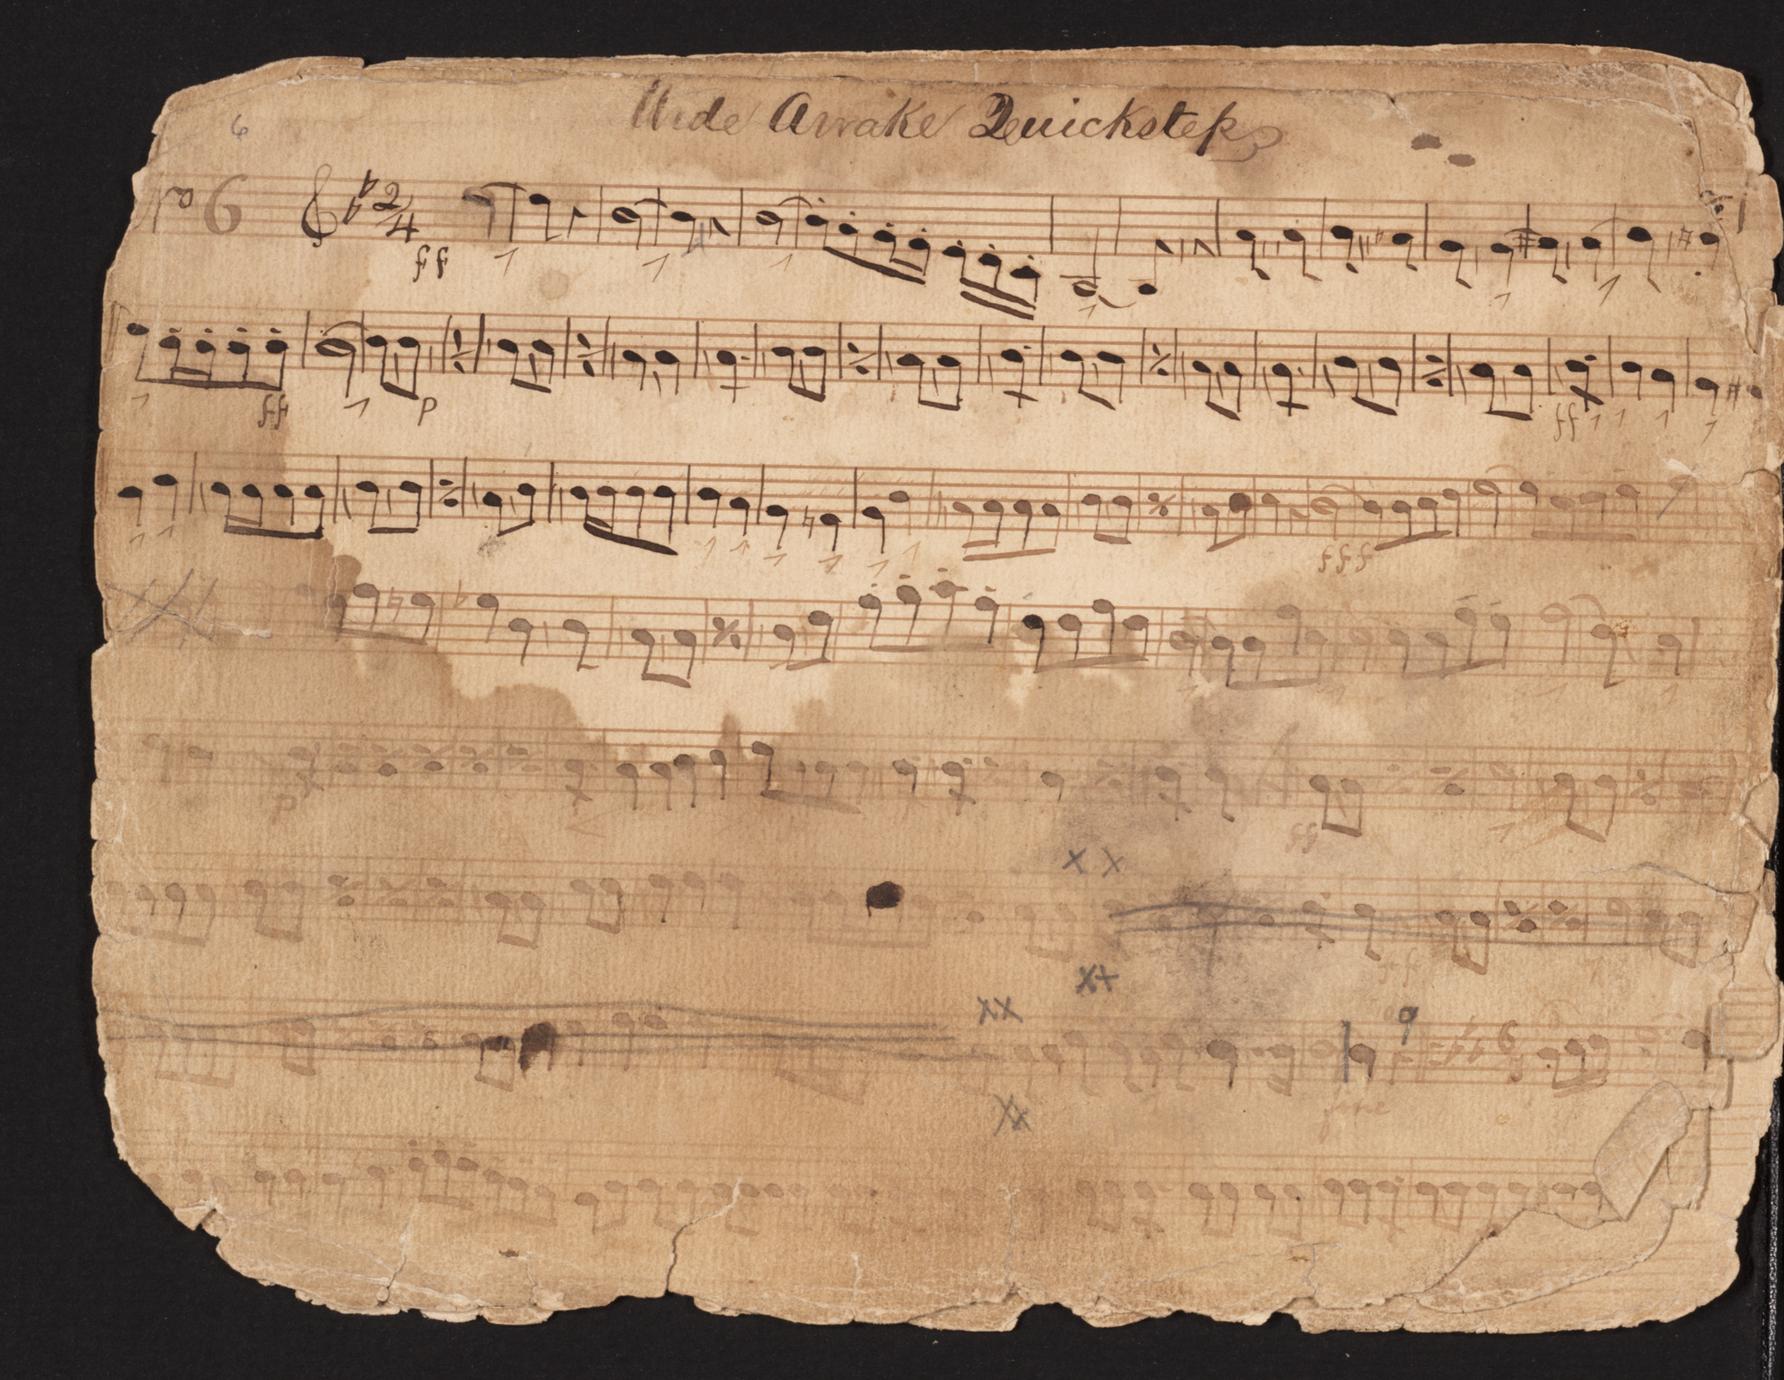 6
Wide Awake Quickstep
No 6 2/4
ff
ff p ff
fff
p ff
x x
ff
x+
xx
fine
xx